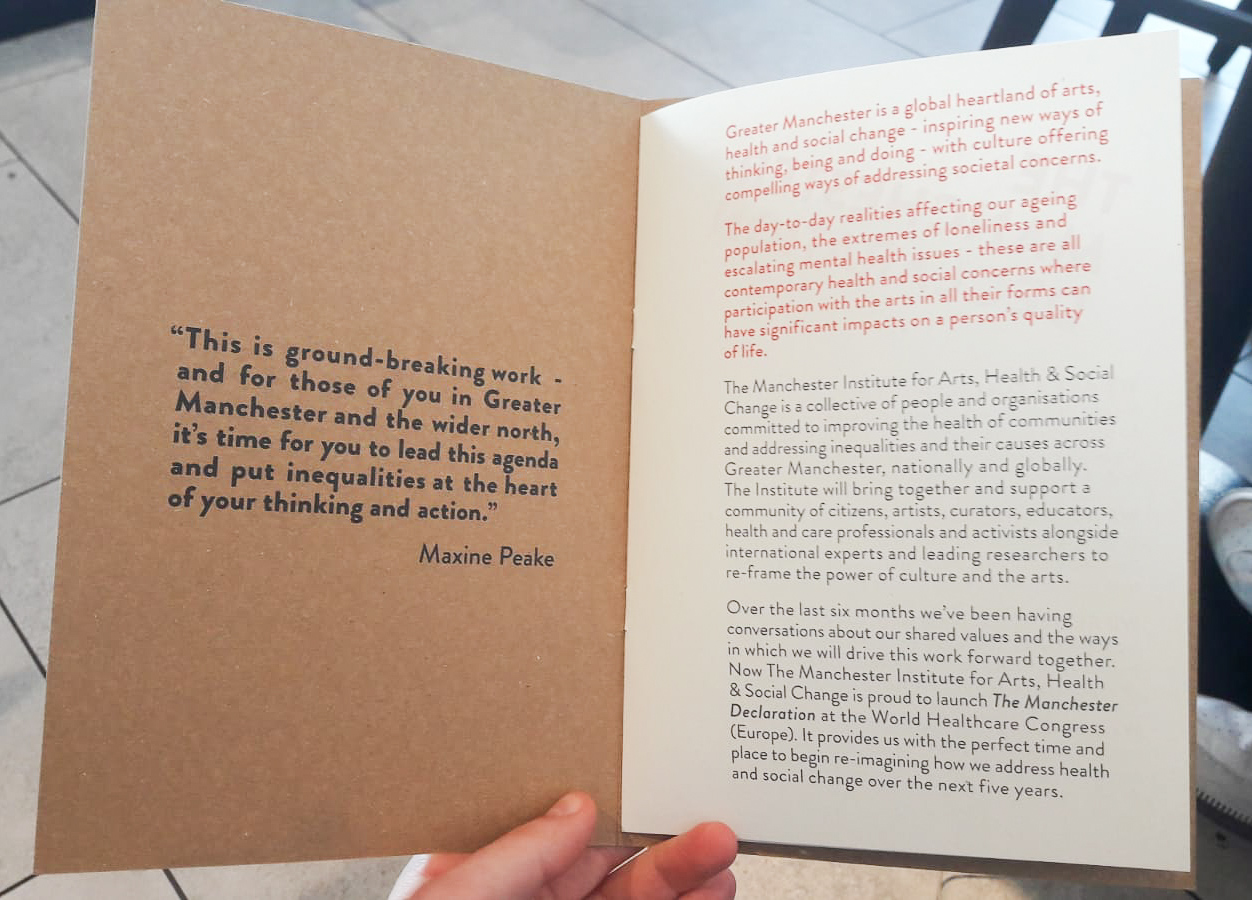 “This is ground-breaking work -
and for those of you in Greater
Manchester and the wider north,
it’s time for you to lead this agenda
and put inequalities at the heart
of your thinking and action.”
Maxine Peake
Greater Manchester is a global heartland of arts,
health and social change - inspiring new ways of
thinking, being and doing - with culture offering
compelling ways of addressing societal concerns.
The day-to-day realities affecting our ageing
population, the extremes of loneliness and
escalating mental health issues - these are all
contemporary health and social concerns where
participation with the arts in all their forms can
have significant impacts on a person’s quality
of life.
The Manchester Institute for Arts, Health & Social
Change is a collective of people and organisations
committed to improving the health of communities
and addressing inequalities and their causes across
Greater Manchester, nationally and globally.
The Institute will bring together and support a
community of citizens, artists, curators, educators,
health and care professionals and activists alongside
international experts and leading researchers to
re-frame the power of culture and the arts.
Over the last six months we’ve been having
conversations about our shared values and the ways
in which we will drive this work forward together.
Now The Manchester Institute for Arts, Health
& Social Change is proud to launch The Manchester
Declaration at the World Healthcare Congress
(Europe). It provides us with the perfect time and
place to begin re-imagining how we address health
and social change over the next five years.